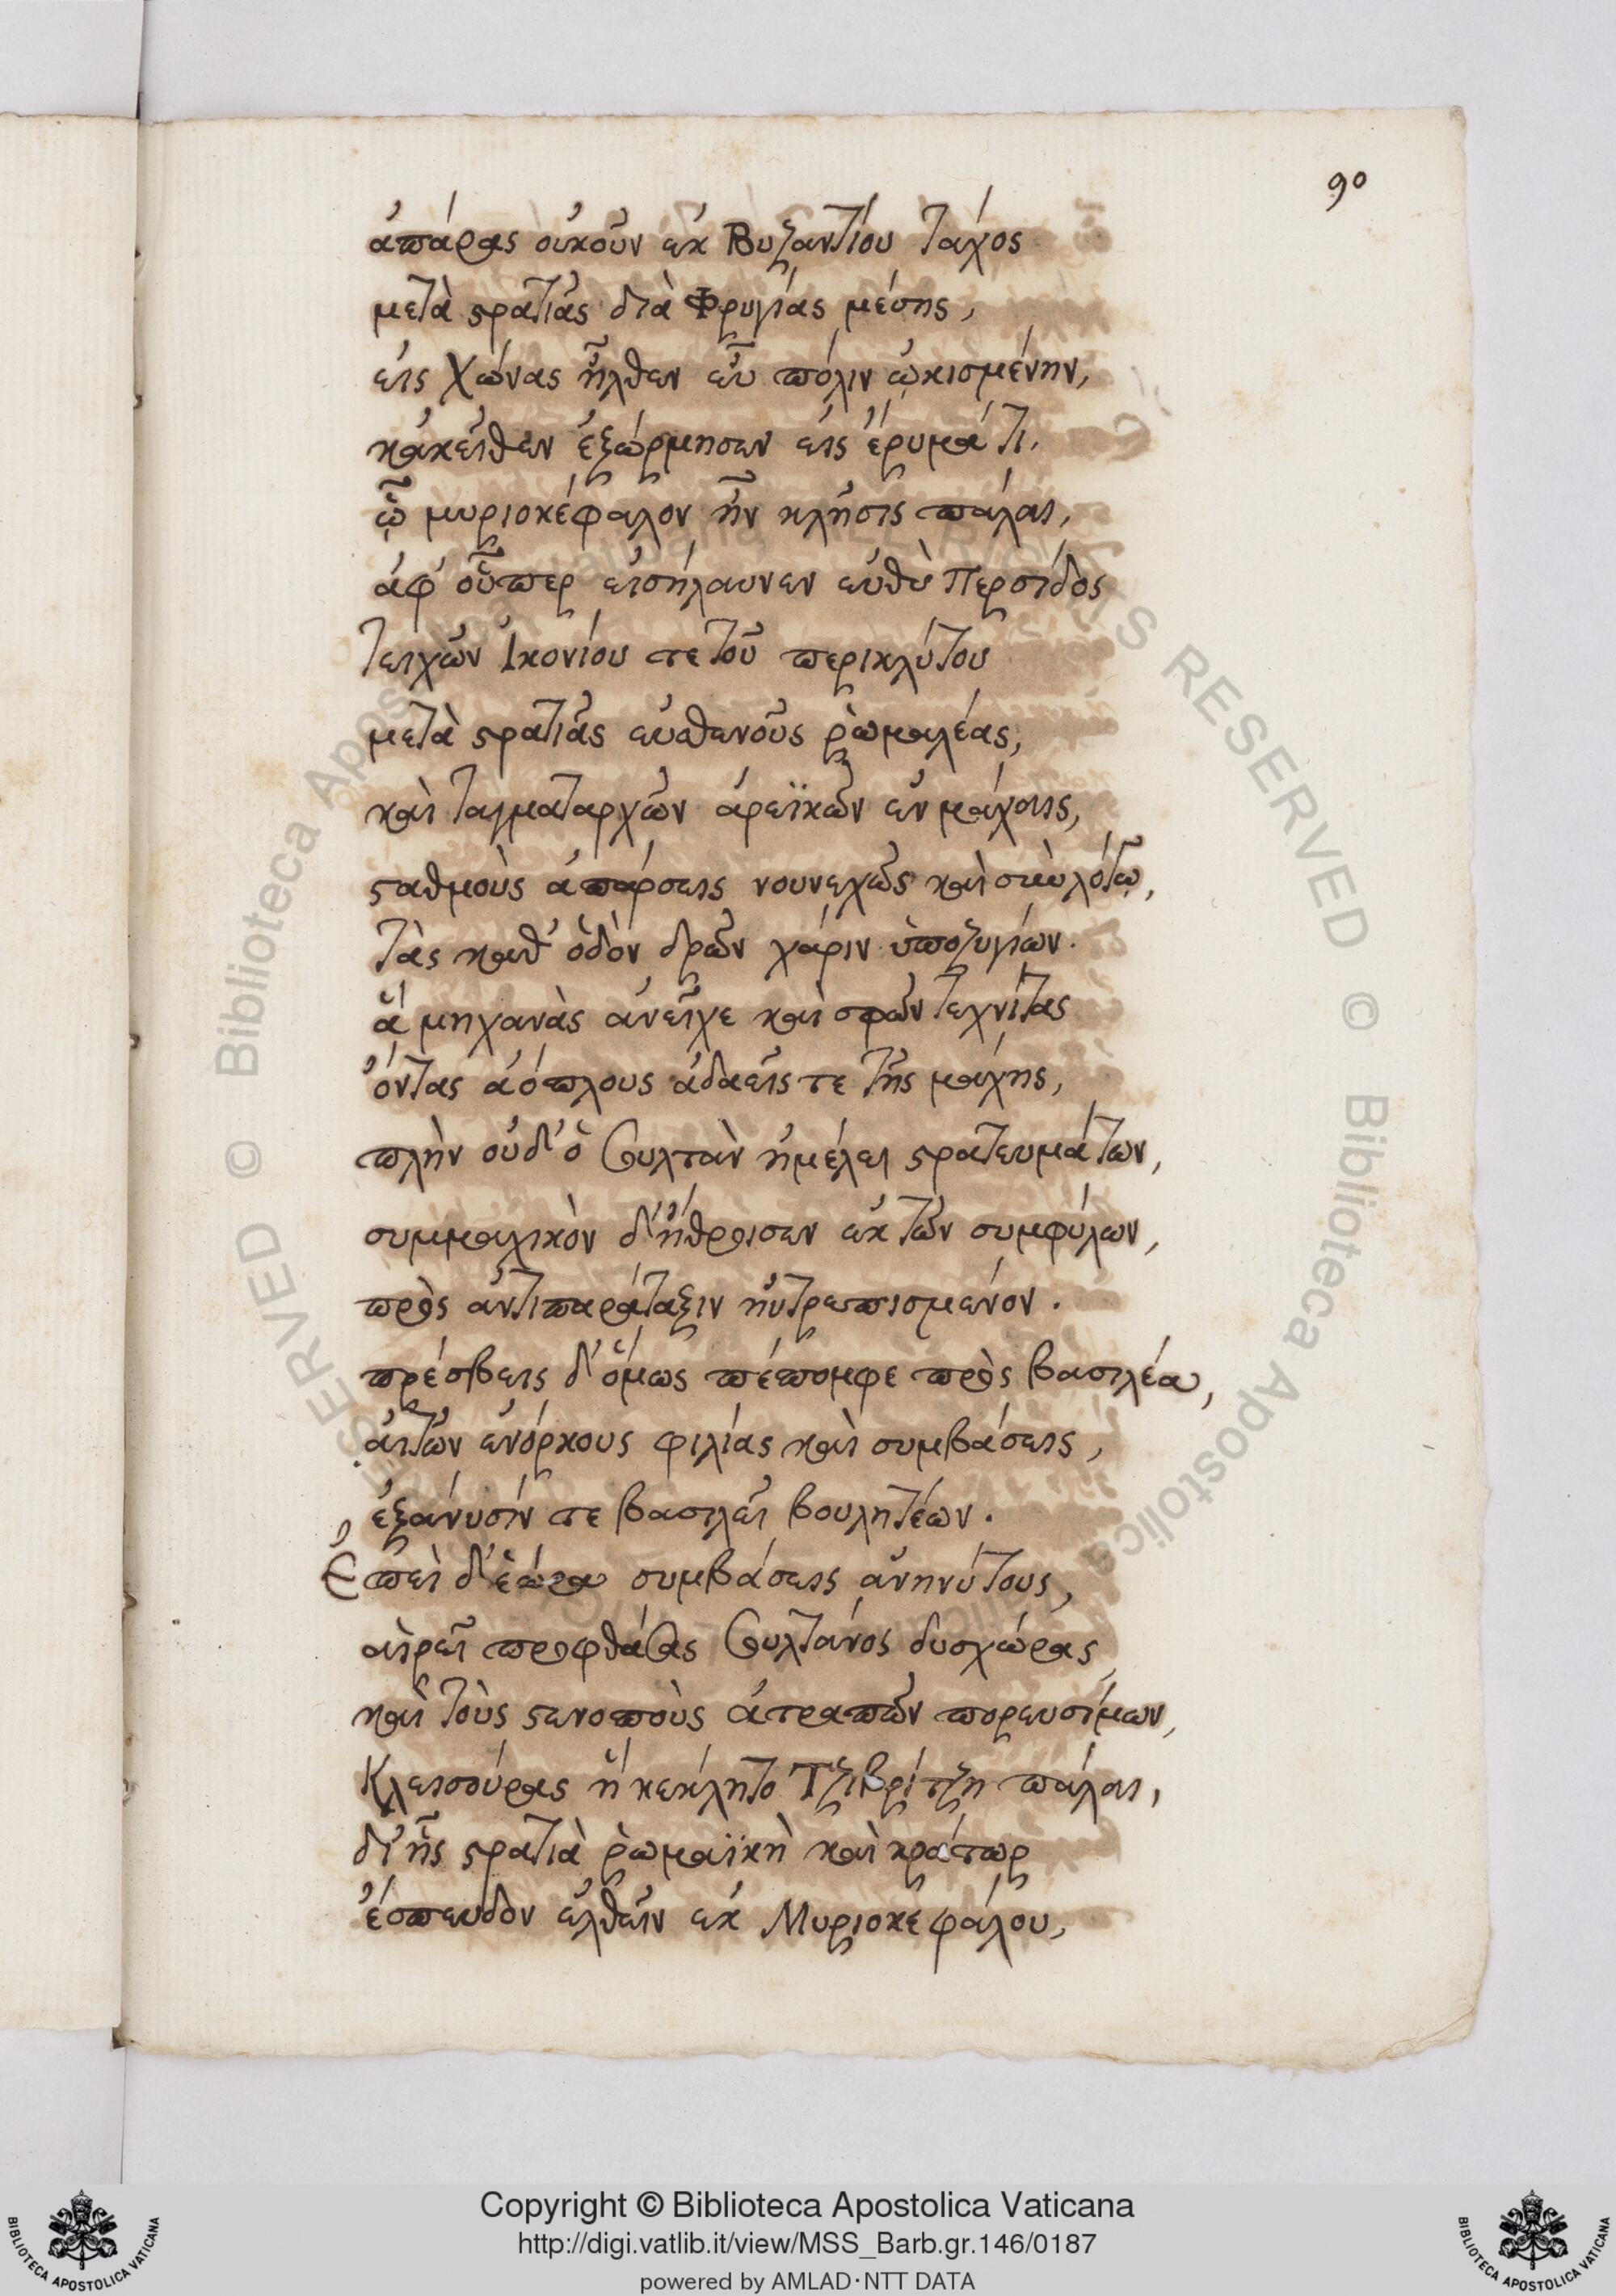 90
ἀπάρας οὐκοῦν ἐκ Βυζαντίου τάχος
μετὰ στρατιᾶς διὰ Φρυγίας μέσης,
εἰς Χώνας ἦλθεν εὖ πόλιν ᾠκισμένην,
κἀκεῖθεν ἐξώρμησεν εἰς ἔρυμά τι,
ᾧ μυριοκέφαλον ἦν κλῆσις πάλαι,
ἀφ' οὗπερ εἰσήλαυνεν εὐθὺ Περσίδος
τειχῶν Ἰκονίου τε τοῦ περικλύτου
μετὰ στρατιᾶς εὐσθενοῦς ῥωμαλέας,
καὶ ταγματαρχῶν ἀρεϊκῶν ἐν μάχαις,
σταθμοὺς ἀπάρσεις νουνεχῶς καὶ σὺν
τὰς καθ' ὁδὸν δρῶν χάριν ὑποζυγίων.
ἃ μηχανὰς ἀνεῖχε καὶ σφῶν τεχνίτας
ὄντας ἀόπλους ἀδαεῖς τε τῆς μάχης,
πλὴν οὐδ' ὁ Σουλτὰν ἠμέλει στρατευμάτων,
συμμαχικὸν δ' ἤθροισεν ἐκ τῶν συμφύλων,
πρὸς ἀντιπαράταξιν ηὐτρεπισμένον.
πρέσβεις δ' ὅμως πέπομφε πρὸς βασιλέα,
αἰτῶν ἐνόρκους φιλίας καὶ συμβάσεις,
ἐξάνυσίν τε βασιλεῖ βουλητέων.
Ἐπεὶ δ' ἑώρα συμβάσεις ἀνηνύτους,
αἱρεῖ προφθάσας Σουλτάνος δυσχώρας
καὶ τοὺς στενοπους ἀτραπῶν πορευσίμων,
Κλεισούρας ἣ κέκλητο Τζιβρίτζη πάλαι,
δι' ἧς στρατιὰ ῥωμαϊκὴ καὶ κράτωρ
ἔσπευδον ἐλθεῖν ἐκ Μυριοκεφάλου,
Copyright © Biblioteca Apostolica Vaticana
http://digi.vatlib.it/view/MSS_Barb.gr.146/0187
powered by AMLAD·NTT DATA
BIBLIOTECA APOSTOLICA VATICANA
BIBLIOTECA APOSTOLICA VATICANA